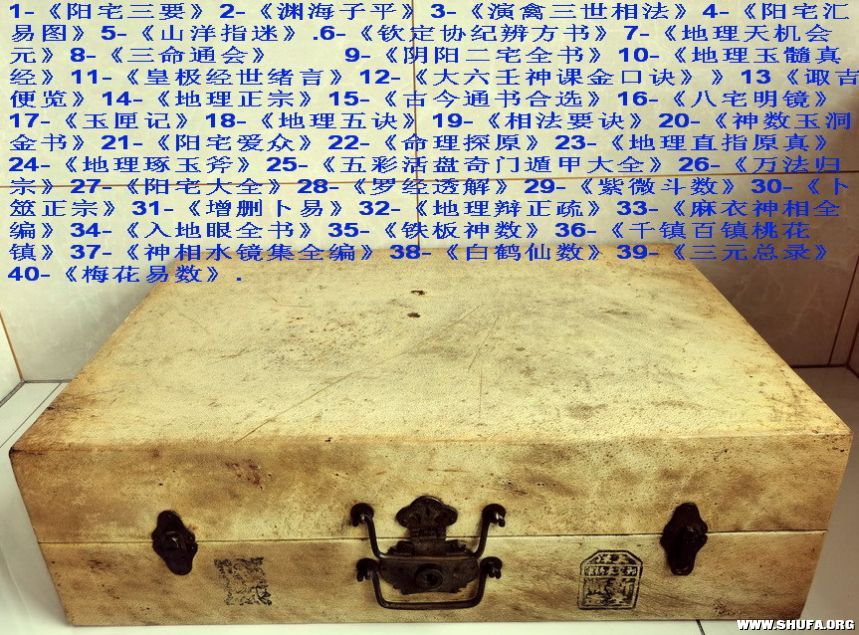 1-《阳宅三要》2-《渊海子平》3-《演禽三世相法》4-《阳宅汇
易图》5-《山洋指迷》.6-《钦定协纪辨方书》7-《地理天机会
元》8-《三命通会》 9-《阴阳二宅全书》10-《地理玉髓真
经》11-《皇极经世绪言》12-《大六壬神课金口诀》》13《诹吉
便览》14-《地理正宗》15-《古今通书合选》16-《八宅明镜》
17-《玉匣记》18-《地理五诀》19-《相法要诀》20-《神数玉洞
金书》21-《阳宅爱众》22-《命理探原》23-《地理直指原真》
24-《地理琢玉斧》25-《五彩活盘奇门遁甲大全》26-《万法归
宗》27-《阳宅大全》28-《罗经透解》29-《紫微斗数》30-《卜
筮正宗》31-《增删卜易》32-《地理辩正疏》33-《麻衣神相全
编》34-《入地眼全书》35-《铁板神数》36-《千镇百镇桃花
镇》37-《神相水镜集全编》38-《白鹤仙数》39-《三元总录》
40-《梅花易数》.
WWW.SHUFA.ORG